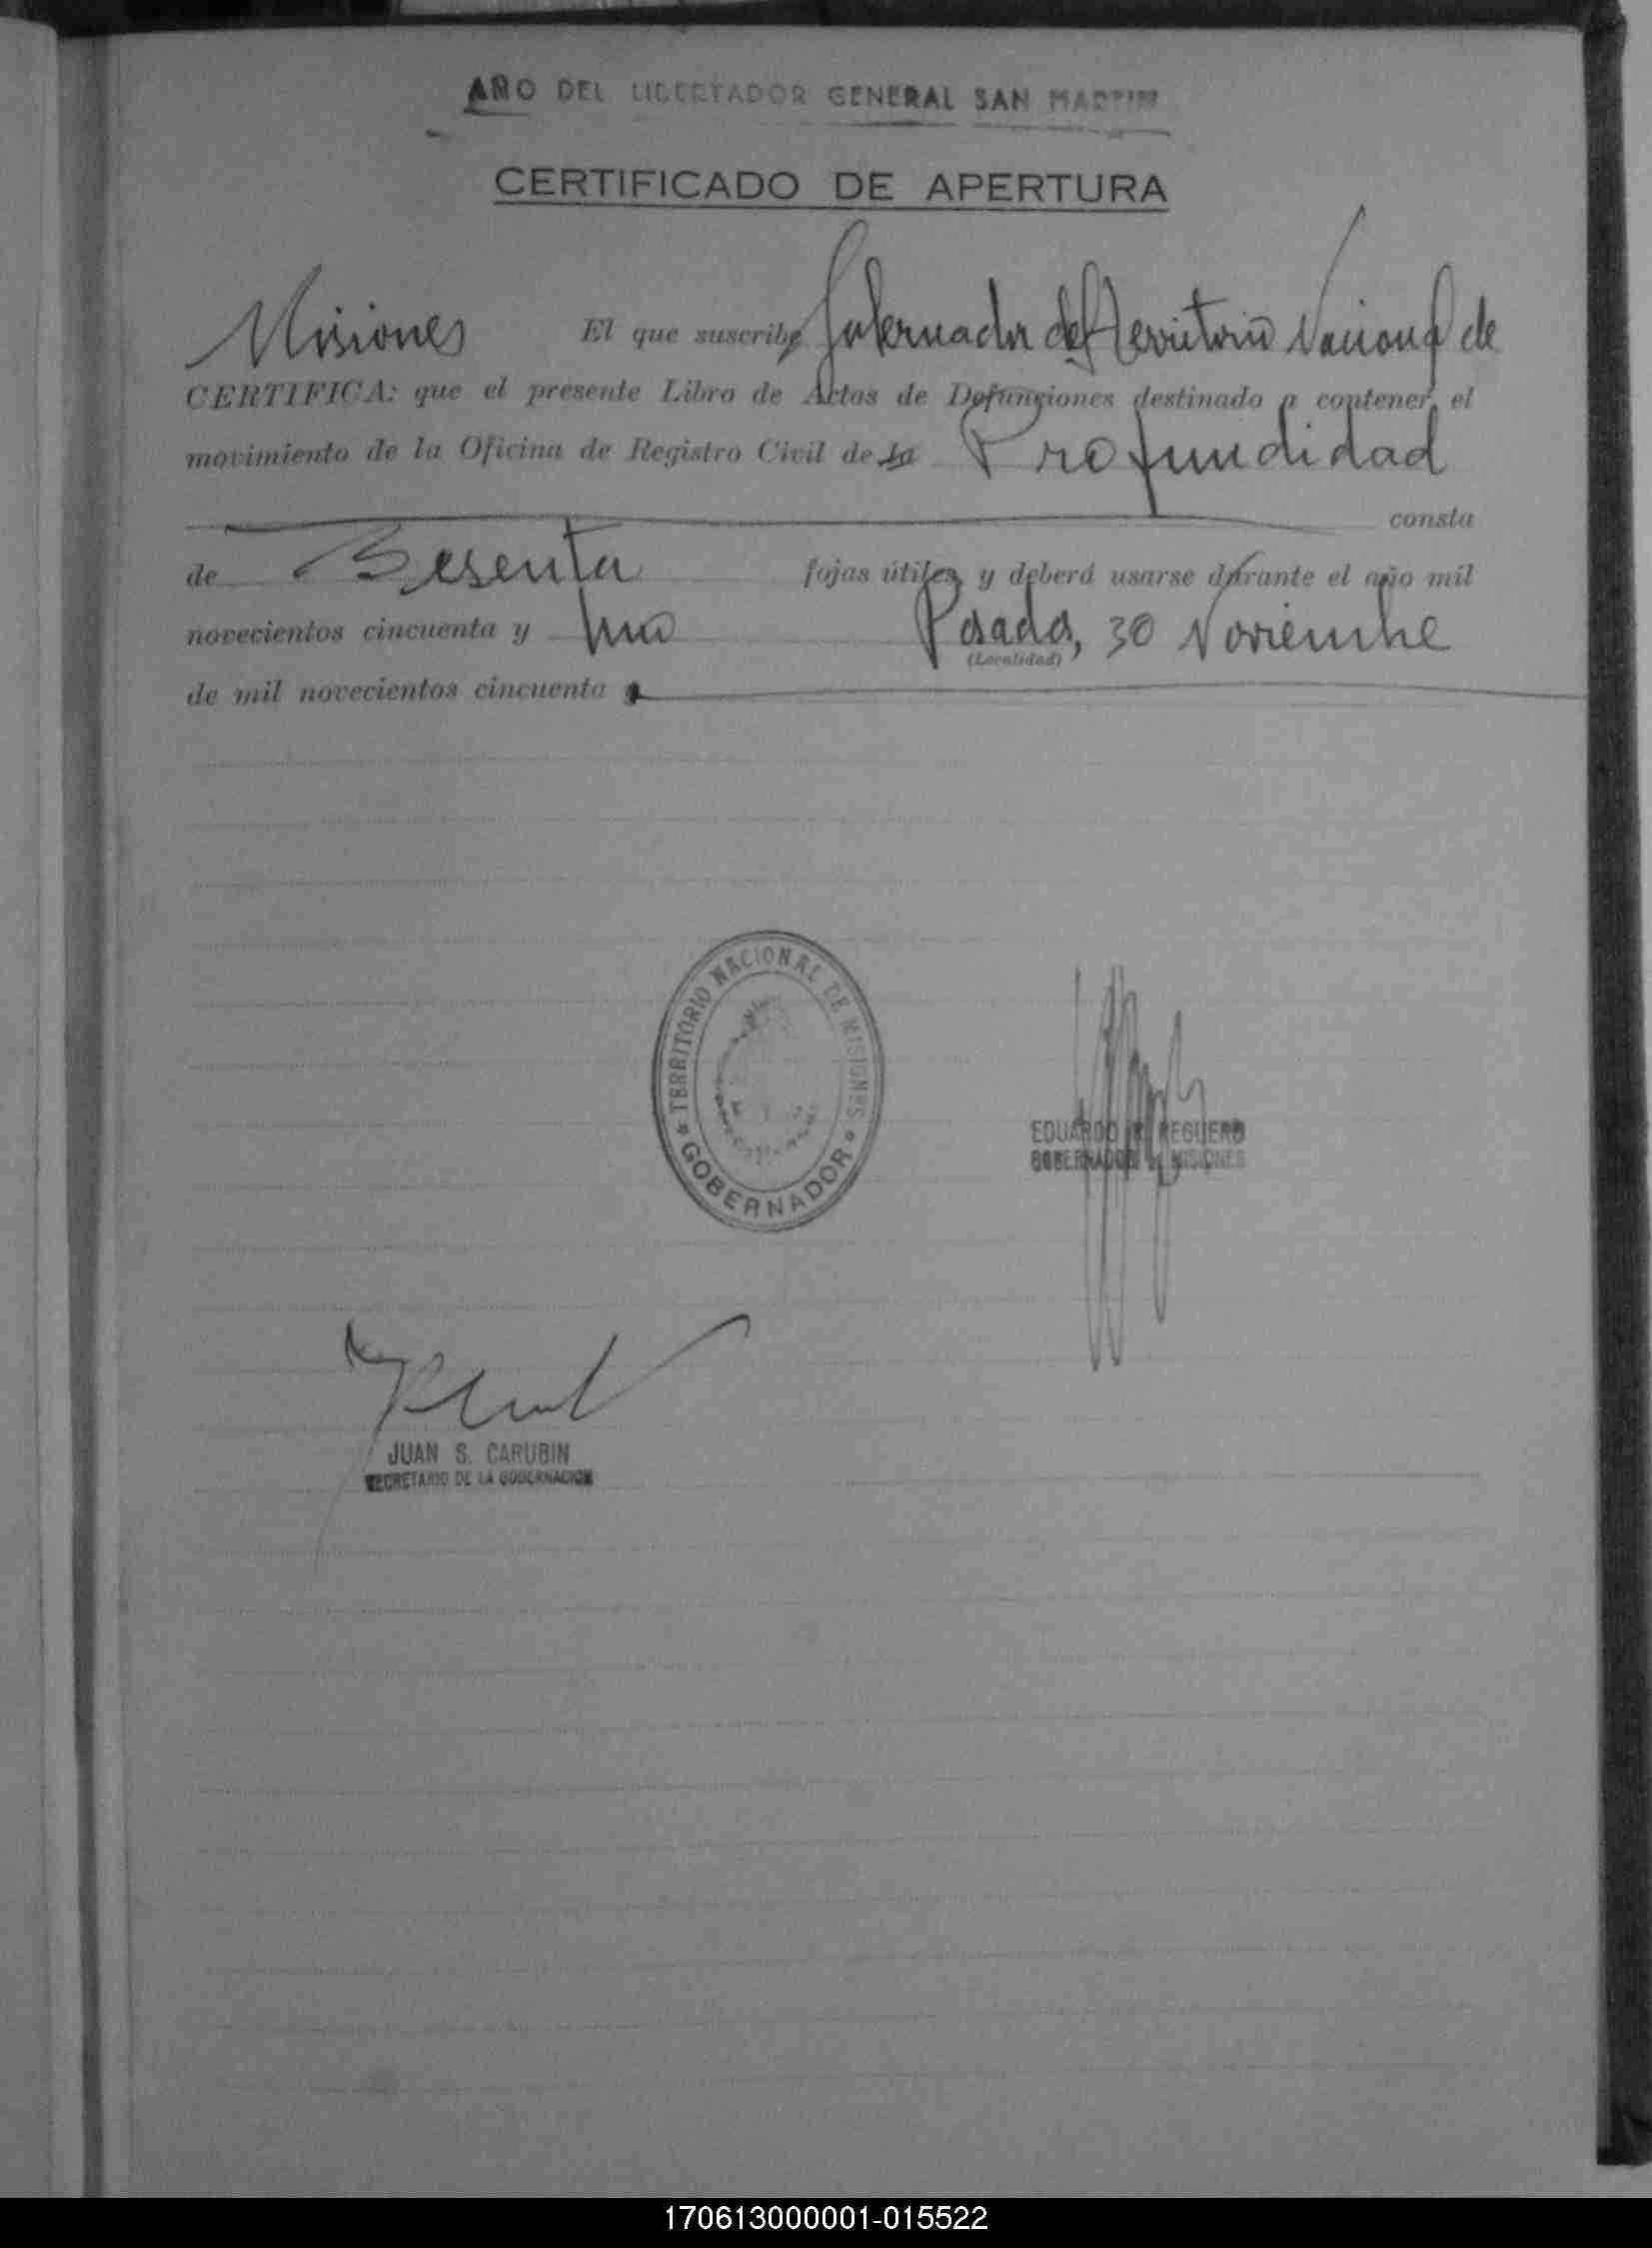 AÑO DEL LIBERTADOR GENERAL SAN MARTIN
CERTIFICADO DE APERTURA
Misiones El que suscribe Gobernador del Territorio Nacional de
CERTIFICA: que el presente Libro de Actas de Defunciones destinado a contener el
movimiento de la Oficina de Registro Civil de la Profundidad
consta
de Sesenta fojas útiles, y deberá usarse durante el año mil
novecientos cincuenta y uno Posadas, 30 Noviembre
(Localidad)
de mil novecientos cincuenta
TERRITORIO NACIONAL DE MISIONES
GOBERNADOR
EDUARDO REGUERO
GOBERNADOR DE MISIONES
JUAN S. CARUBIN
SECRETARIO DE LA GOBERNACION
170613000001-015522